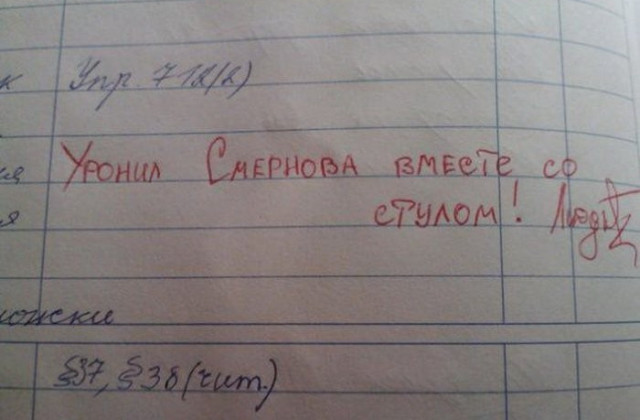 к Упр. 712(2)
ия Уронил Смернова вместе со
я стулом!
ожски
§37, §38 (чит.)